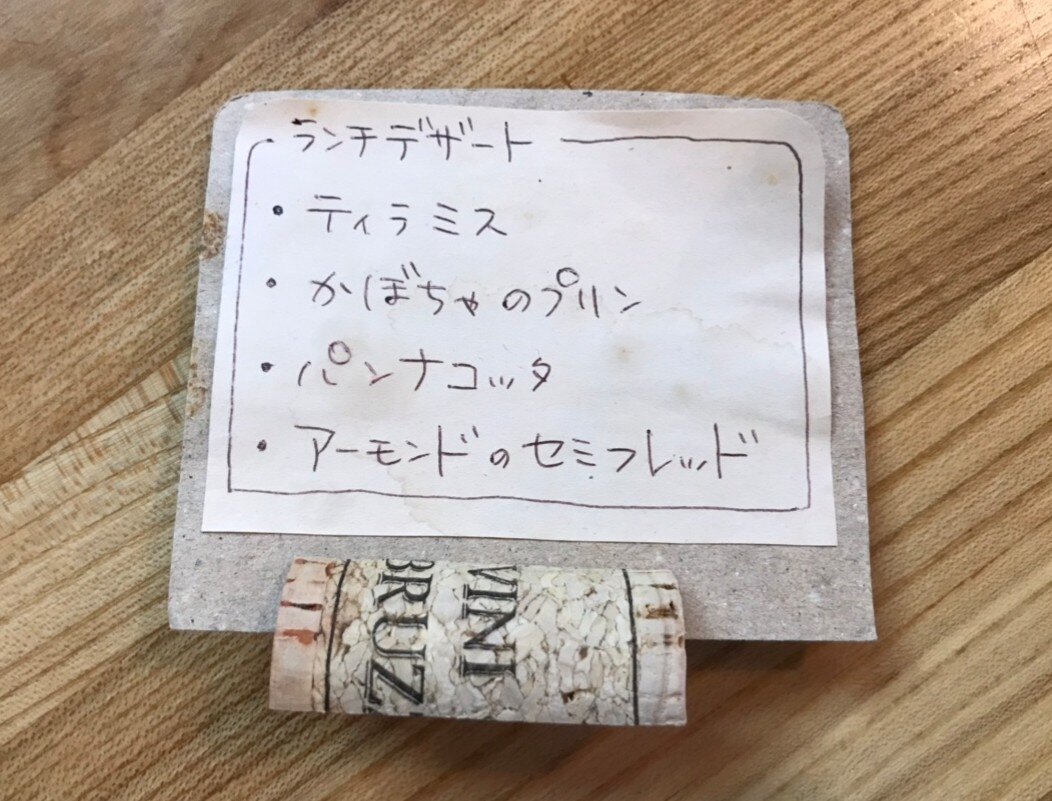 ランチデザート
・ティラミス
・かぼちゃのプリン
・パンナコッタ
・アーモンドのセミフレッド
VINI
BRUZ